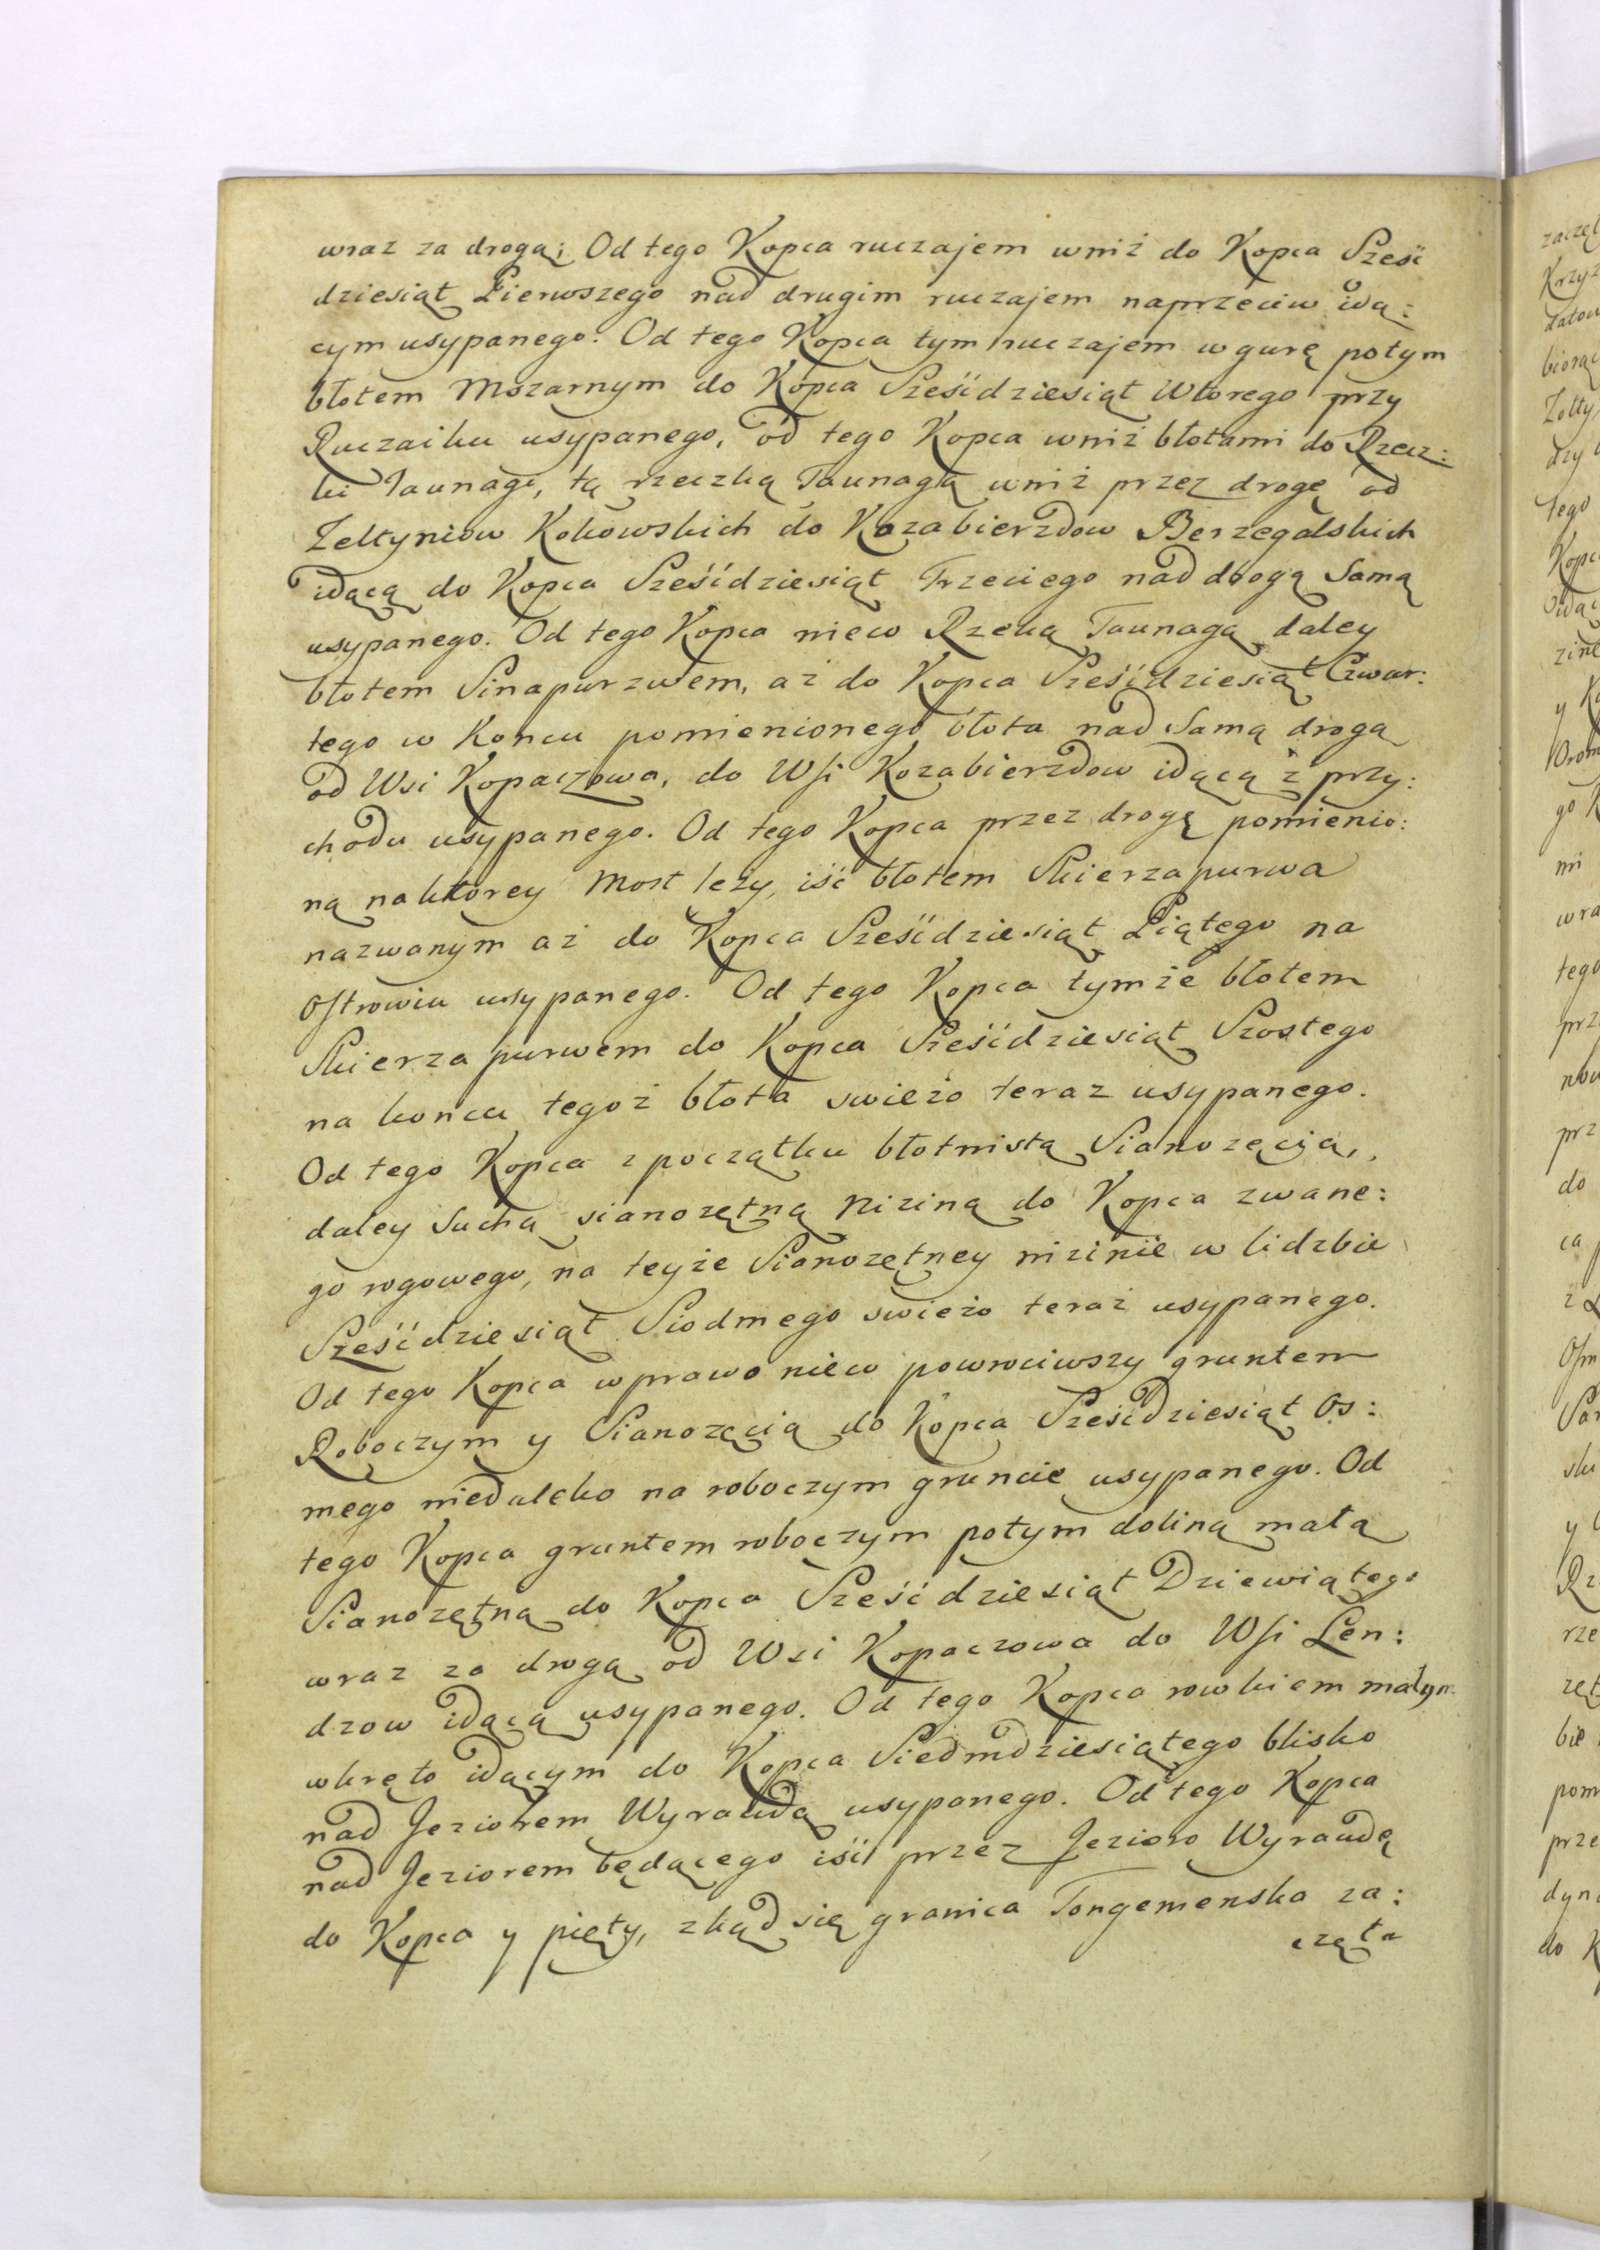 wraz za drogą; Od tego Kopca ruczajem wniż do Kopca Sześć
dziesiąt Pierwszego nad drugim ruczajem naprzeciw idą:
cym usypanego. Od tego Kopca tym ruczajem w gurę potym
błotem Mszarnym do Kopca Sześćdziesiąt Wtorego przy
Ruczaiku usypanego, od tego Kopca wniż błotami do Rzecz:
ki Taunagi, tą rzeczką Taunagą wniż przez drogę od
Zeltyniow Kokowskich do Kazabierzdow Berzegalskich
idącą do Kopca Sześćdziesiąt Trzeciego nad drogą Samą
usypanego. Od tego Kopca niew Rzeką Taunagą daley
błotem Sinapurzwem, aż do Kopca Sześćdziesiąt Czwar:
tego w Koncu pomienionego błota nad Samą drogą
od Wsi Kopaczowa, do Wsi Kozabierzdow idącą z przy:
chodu usypanego. Od tego Kopca przez drogę pomienio:
ną na ktorey Most leży, iść błotem Skierzapurwa
nazwanym aż do Kopca Sześćdziesiąt Piątego na
Ostrowiu usypanego. Od tego Kopca tymże błotem
Skierzapurwem do Kopca Sześćdziesiąt Szostego
na koncu tegoż błota swieżo teraz usypanego.
Od tego Kopca z początku błotnistą Sianożęcią,
daley Suchą sianożętną Niziną do Kopca zwane:
go rogowego, na teyże Sianożętney nizinie w lidzbie
Sześćdziesiąt Siodmego swieżo teraż usypanego.
Od tego Kopca w prawo niew powrociwszy gruntem
Roboczym y Sianożęcią do Kopca Sześćdziesiąt Os:
mego niedaleko na roboczym gruncie usypanego. Od
tego Kopca gruntem roboczym potym doliną małą
Sianożętną do Kopca Sześćdziesiąt Dziewiątego
wraz za drogą od Wsi Kopaczowa do Wsi Len:
dzow idącą usypanego. Od tego Kopca rowkiem małym
wkręto idącym do Kopca Siedmdziesiątego blisko
nad Jeziorem Wyraudą usypanego. Od tego Kopca
nad Jeziorem będącego iść przez Jezioro Wyraudę
do Kopca y pięty, zkąd się granica Tongemenska za:
częta